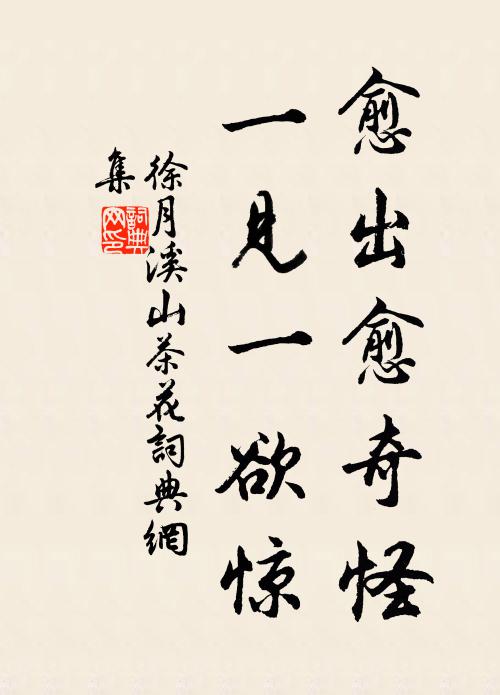 愈出愈奇怪
一見一欲惊
徐月溪山茶花詞典網
集
詞典网印